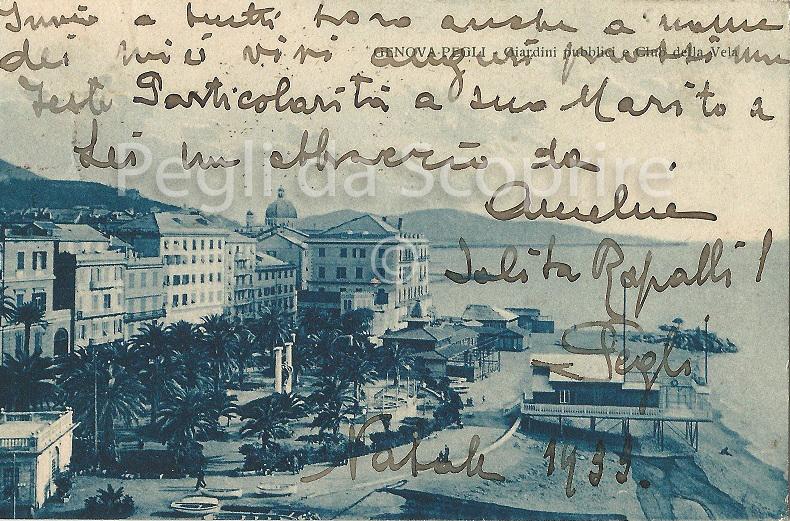 Invio a tutti loro anche a nome
GENOVA-PEGLI - Giardini pubblici e Club della Vela
dei miei vivi auguri
Feste Particolarità a suo Marito a
Lei un abbraccio da
Pegli da Scoprire
©
Iolita Rapalli!
Pegli
Natale 1933.